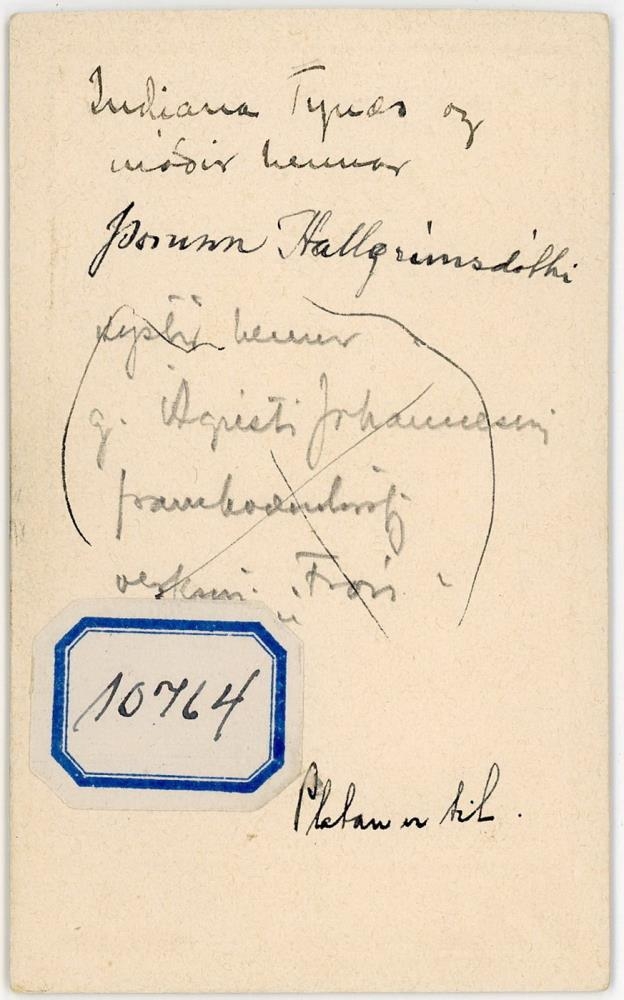 Indiana Tynæs og
móðir hennar
Þórunn Hallgrímsdóttir
systir hennar
g. Ágústi Jóhannessyni
verksm. „Frón“
10764
Platan er til.